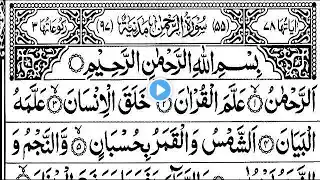 اٰیاتها ٧٨ (٥٥) سُوْرَةُ الرَّحْمٰنِ مَدَنِیَّةٌ (٩٧) رکوعاتها ٣
بِسْمِ اللّٰهِ الرَّحْمٰنِ الرَّحِیْمِ
اَلرَّحْمٰنُ ۙ‏١ عَلَّمَ الْقُرْاٰنَ ؕ‏٢ خَلَقَ الْاِنْسَانَ ۙ‏٣ عَلَّمَهُ
الْبَیَانَ ‏٤ اَلشَّمْسُ وَ الْقَمَرُ بِحُسْبَانٍ ۪‏٥ وَّ النَّجْمُ وَ